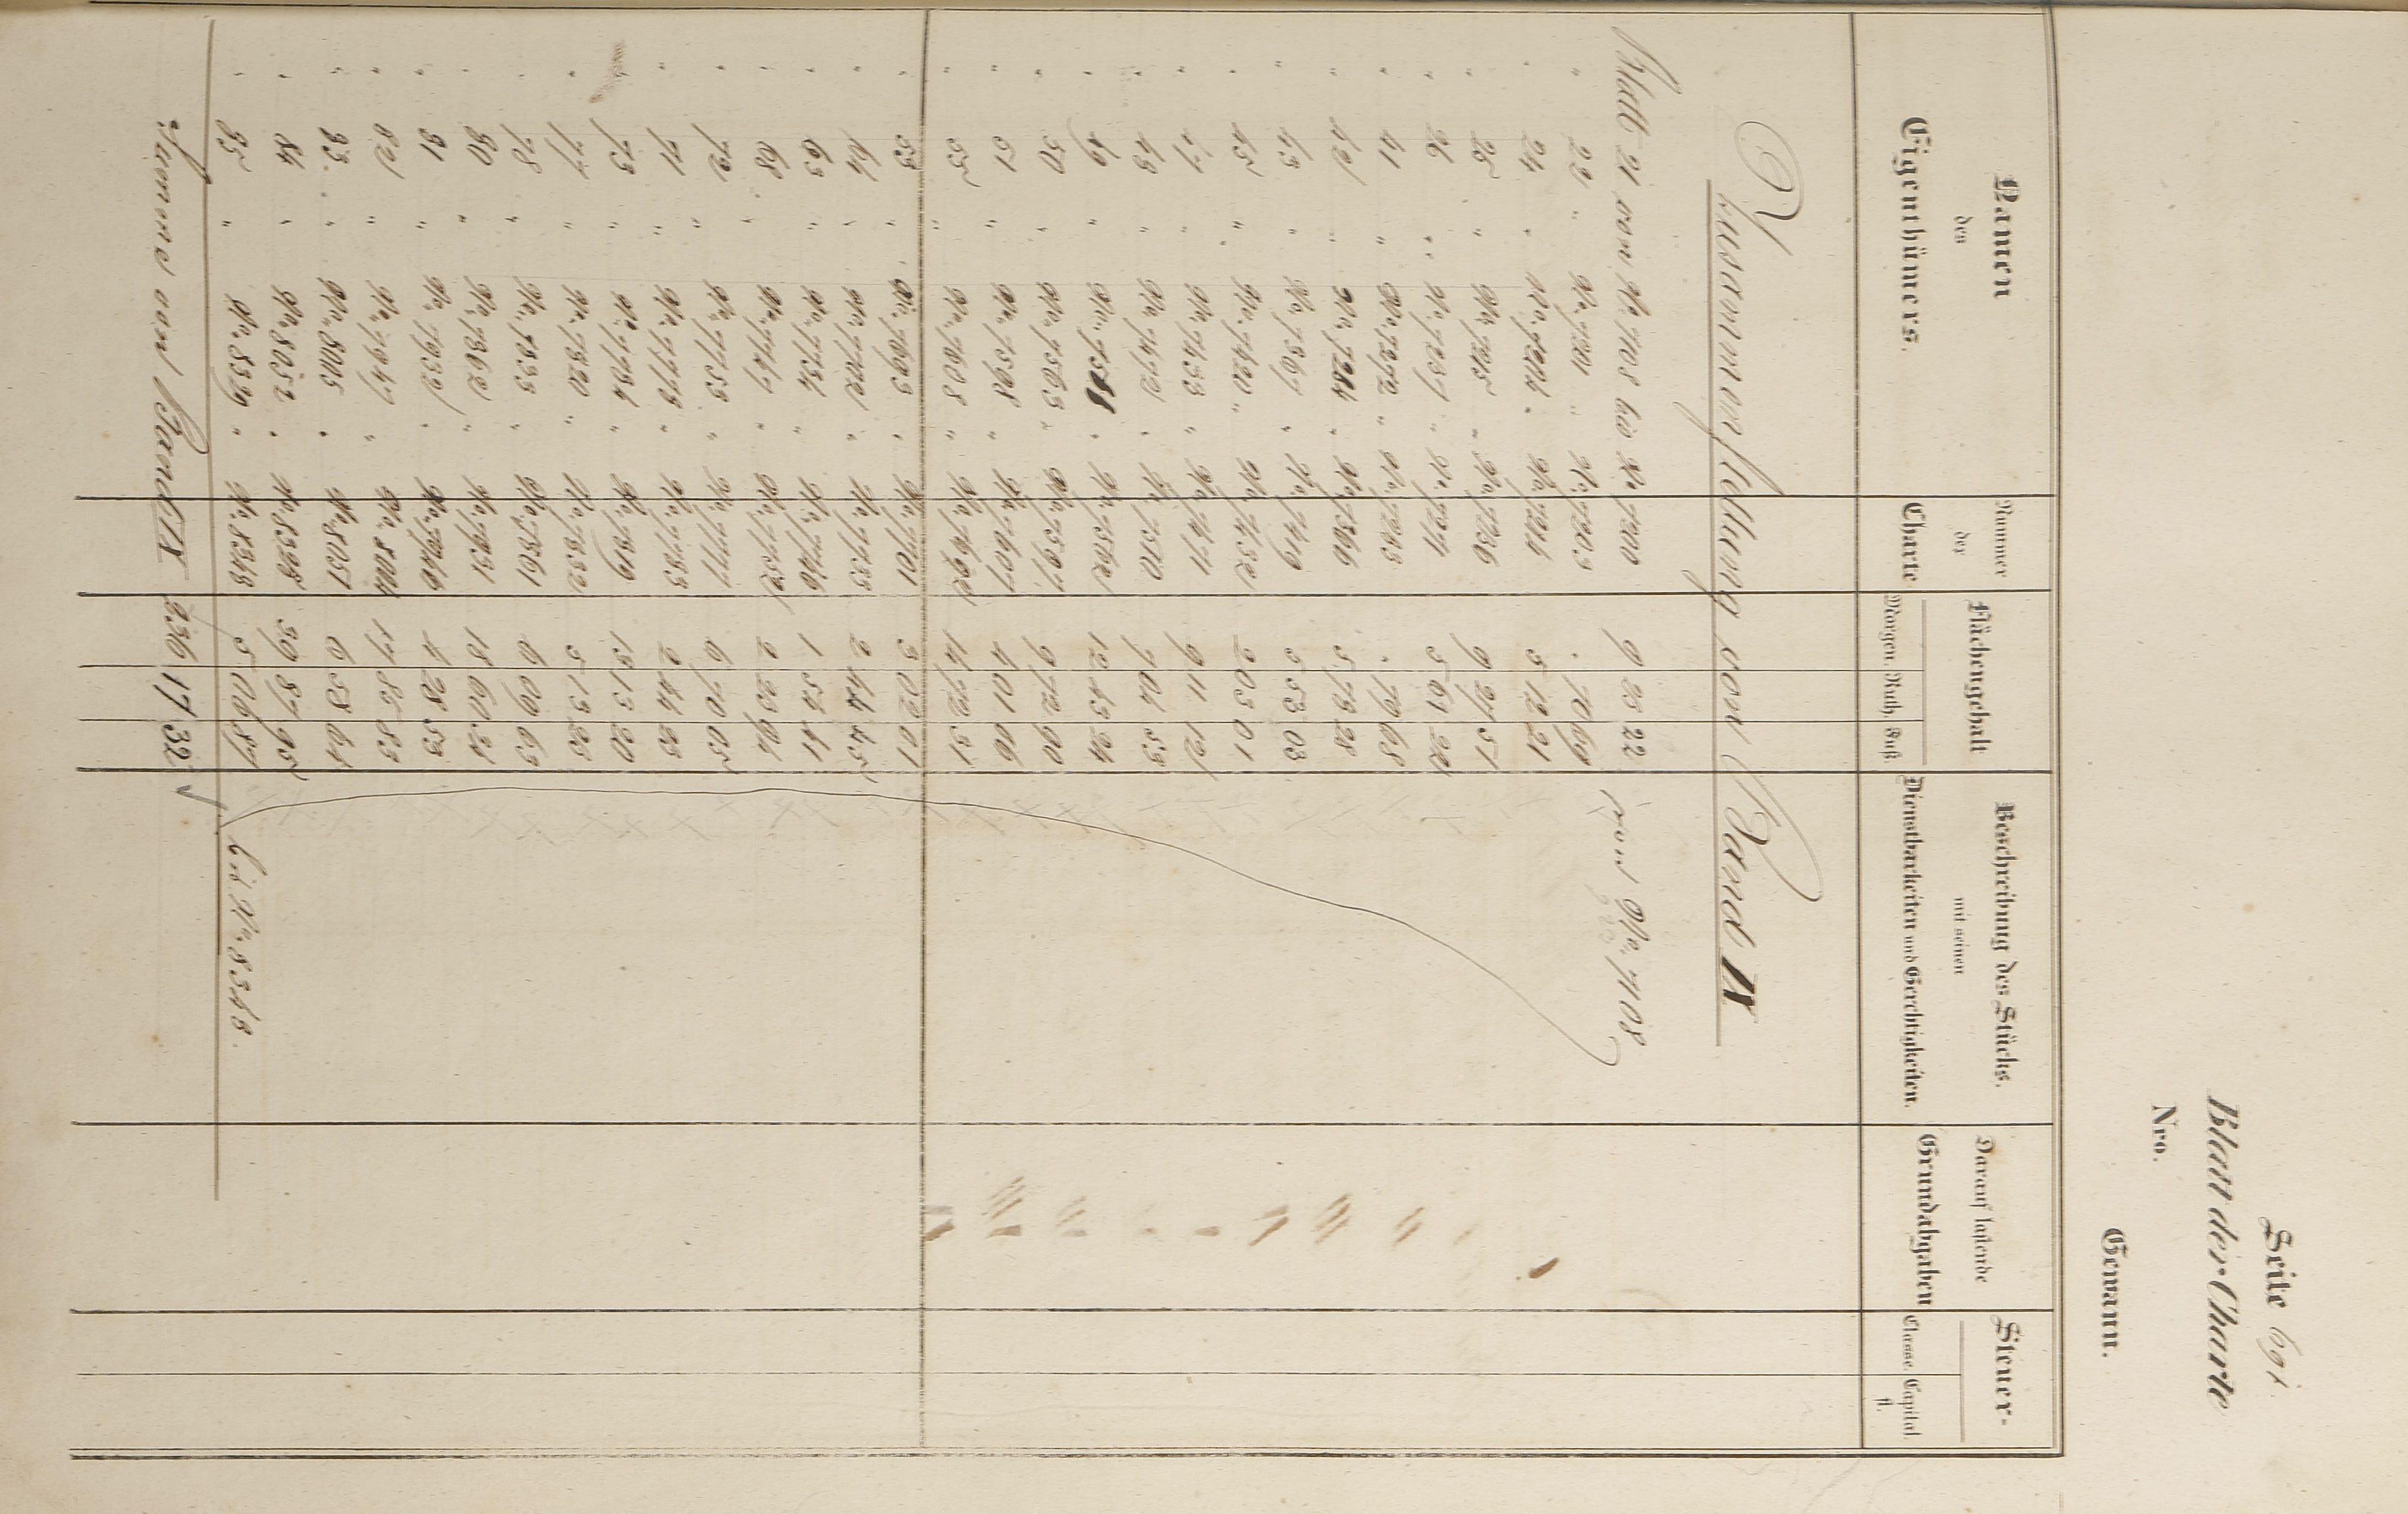 Seite 691
Blatt der Charte
Nro.
Gewann.
Namen des Eigenthümers.
Nummer der Charte
Flächengehalt
Morgen. Ruth. Fuß.
Beschreibung des Stücks. mit seinen Dienstbarkeiten und Gerechtigkeiten.
Darauf lastende Grundabgaben
Steuer-
Classe. Capital. fl.
Zusammenstellung von Band IX
Blatt 21 von No. 7108 bis No. 7200 9 25 22 No. 7108
" 22 " No. 7201 " No. 7203 . 70 69
" 24 " No. 7204 " No. 7214 5 12 21
" 25 " No. 7215 " No. 7236 9 27 51
" 26 " No. 7237 " No. 7271 5 61 22
" 41 " No. 7272 " No. 7283 . 79 68
" 42 " No. 7284 " No. 7366 5 78 28
" 43 " No. 7367 " No. 7419 5 53 03
" 45 " No. 7420 " No. 7432 2 03 01
" 47 " No. 7433 " No. 7471 9 11 12
" 48 " No. 7472 " No. 7510 7 04 53
" 49 " No. 7511 " No. 7562 12 43 24
" 50 " No. 7563 " No. 7597 9 72 90
" 51 " No. 7598 " No. 7607 4 01 06
" 55 " No. 7608 " No. 7692 14 72 31
" 53 " No. 7693 " No. 7701 3 02 01
" 64 " No. 7702 " No. 7733 2 44 45
" 63 " No. 7734 " No. 7746 1 54 41
" 68 " No. 7747 " No. 7752 2 23 04
" 72 " No. 7753 " No. 7777 6 70 05
" 71 " No. 7778 " No. 7783 2 44 25
" 73 " No. 7784 " No. 7819 13 13 20
" 77 " No. 7820 " No. 7832 5 13 25
" 78 " No. 7833 " No. 7861 6 09 63
" 80 " No. 7862 " No. 7931 18 60 34
" 81 " No. 7932 " No. 7946 4 28 53
" 82 " No. 7947 " No. 8004 17 85 83
" 83 " No. 8005 " No. 8051 6 58 64
" 84 " No. 8052 " No. 8328 39 87 95
" 85 " No. 8329 " No. 8348 5 06 87 bis No. 8348.
Summe von Band IX 236 17 32